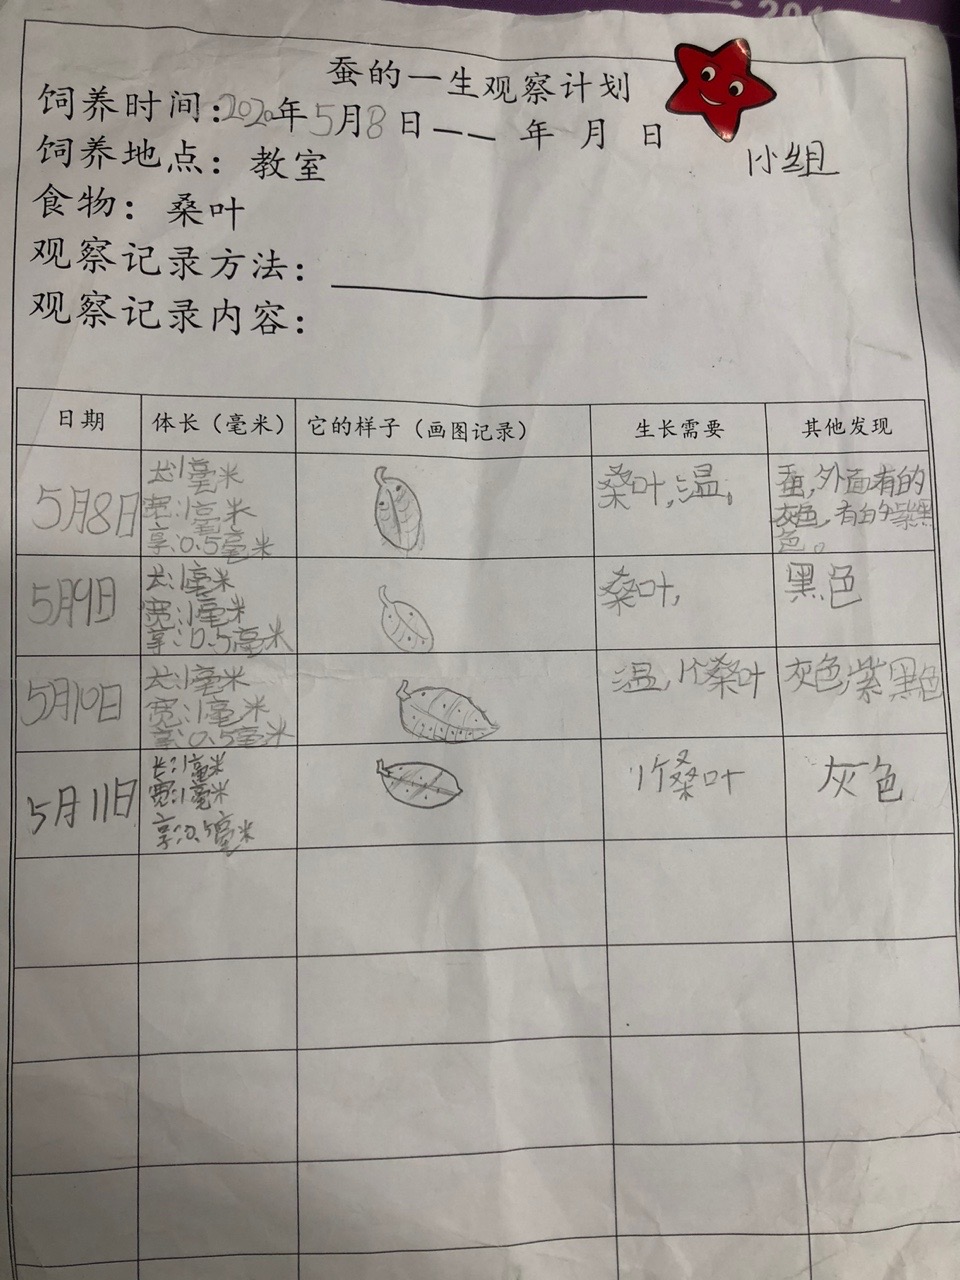 蚕的一生观察计划
饲养时间:2020年5月8日—— 年 月 日
1小组
饲养地点：教室
食物：桑叶
观察记录方法：
观察记录内容：
日期 体长（毫米） 它的样子（画图记录） 生长需要 其他发现
5月8日
长:1毫米
宽:1毫米
享:0.5毫米
桑叶,温,
外面有的
灰色,有的
色。
5月9日
长:1毫米
宽:1毫米
享:0.5毫米
桑叶,
黑色
5月10日
长:1毫米
宽:1毫米
享:0.5毫米
温,1个桑叶
灰色紫黑色
5月11日
长:1毫米
宽:1毫米
享:0.5毫米
1个桑叶
灰色